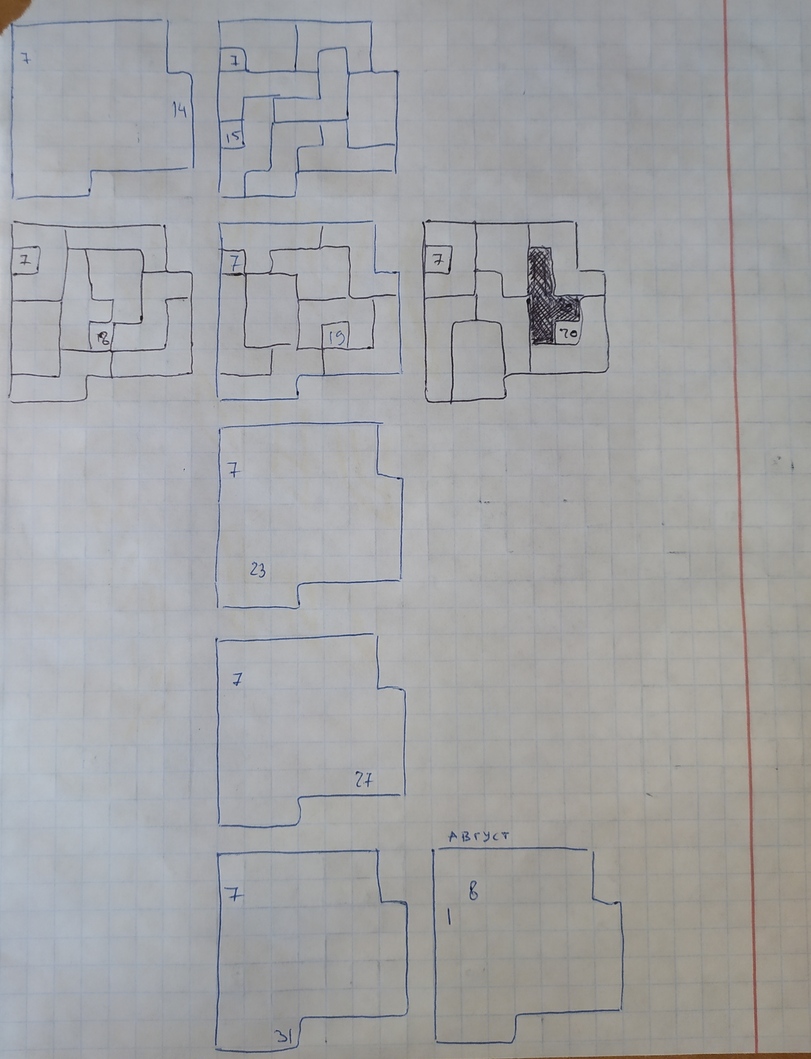 7
14
7
15
7
18
7
19
7
20
7
23
7
27
АВГУСТ
7
31
8
1